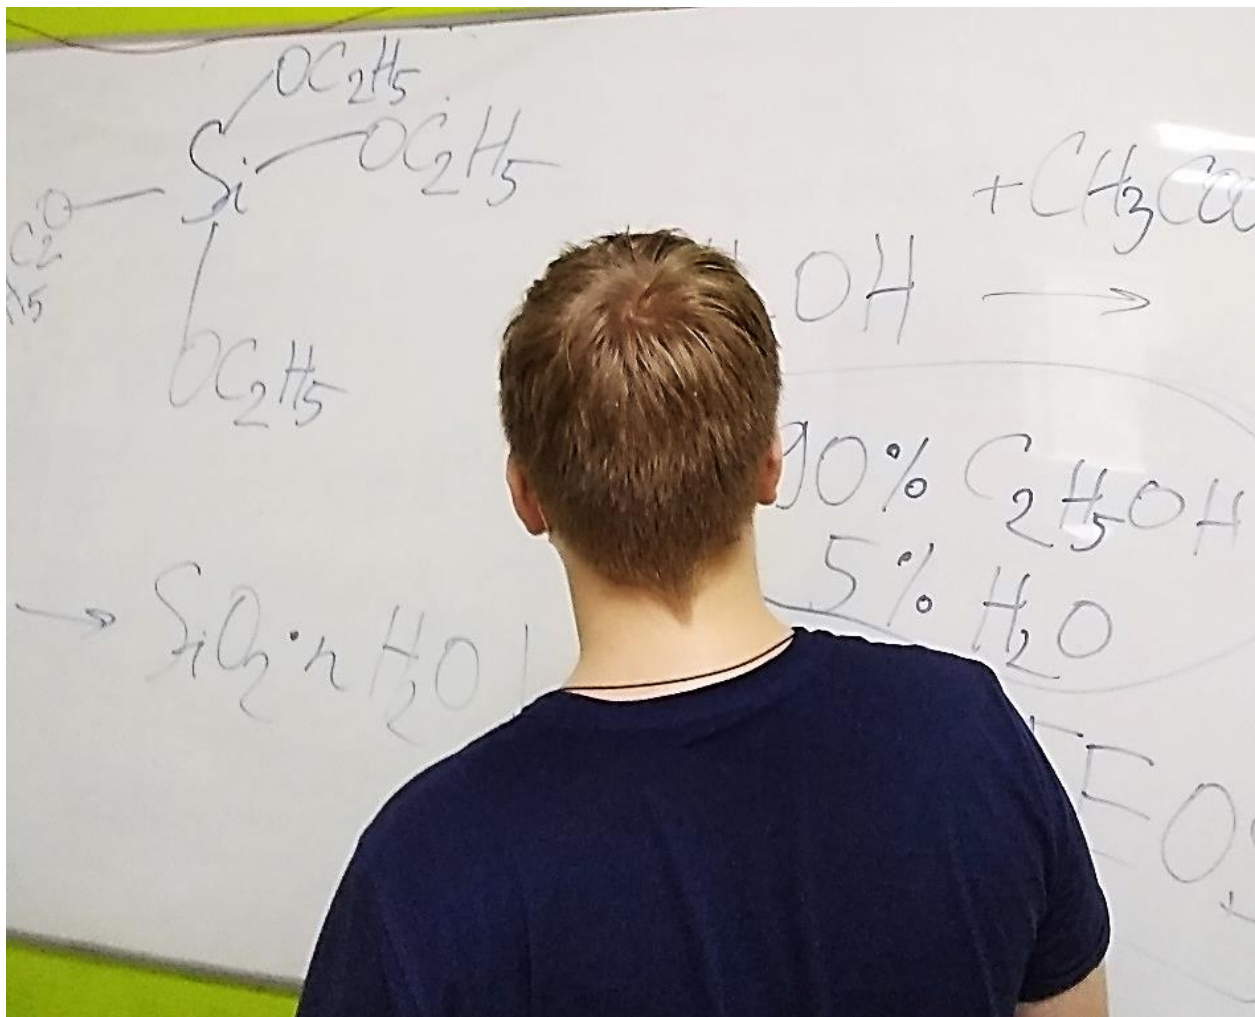 OC2H5
Si OC2H5
O
C2
H5
OC2H5
+CH3COO
OH →
90% C2H5OH
5% H2O
→ SiO2·nH2O
TEOS